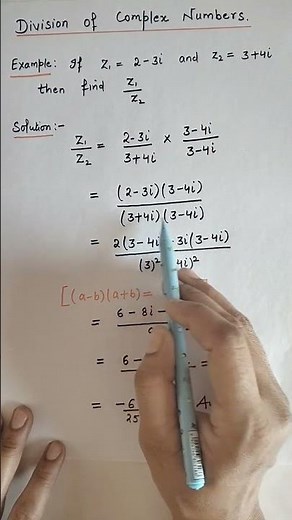 Division of Complex Numbers.
Example: If z₁ = 2-3i and z₂ = 3+4i
then find z₁/z₂
Solution:-
z₁/z₂ = (2-3i)/(3+4i) × (3-4i)/(3-4i)
= (2-3i)(3-4i)/(3+4i)(3-4i)
= 2(3-4i) -3i(3-4i)/(3)² 4i)²
[(a-b)(a+b)=
= 6-8i-
= 6- =
= -6/25